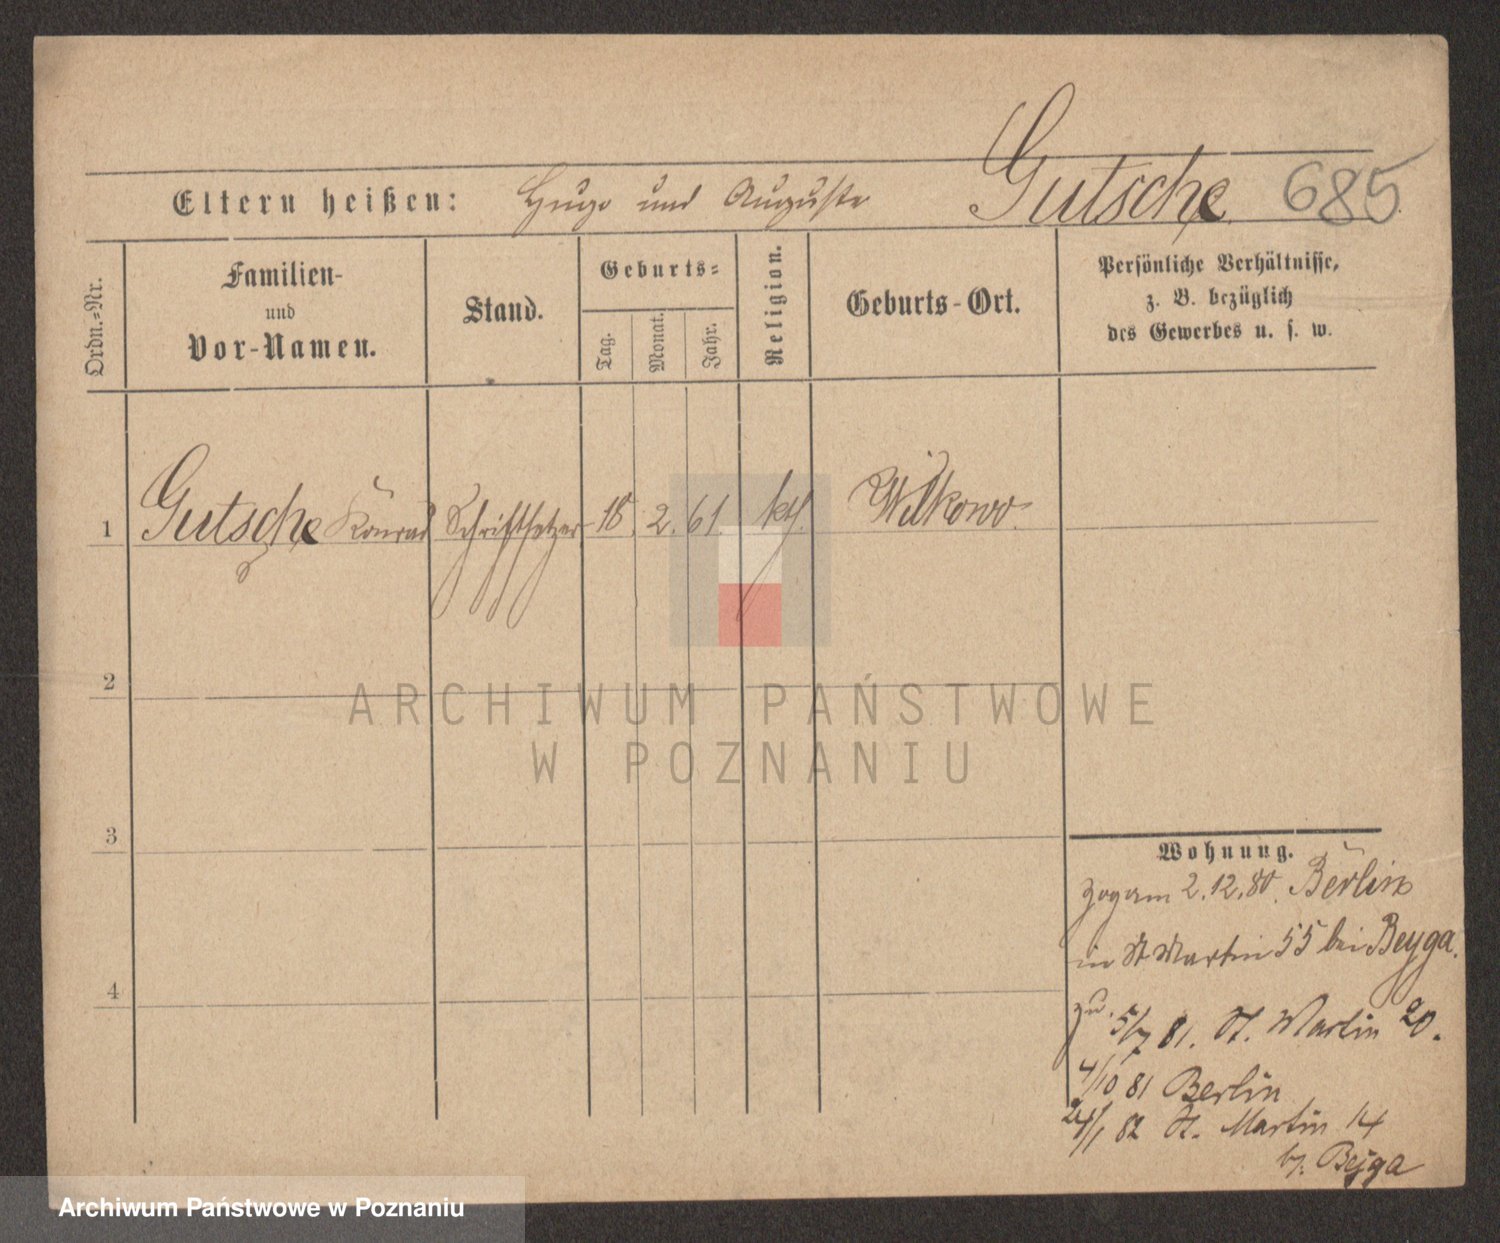 Gutsche 685
Eltern heißen: Hugo und Auguste
Ordn.-Nr.
Familien-
und
Vor-Namen.
Stand.
Geburts-
Tag.
Monat.
Jahr.
Religion.
Geburts-Ort.
Persönliche Verhältnisse,
z. B. bezüglich
des Gewerbes u. s. w.
1 Gutsche Konrad Schriftsetzer 18. 2. 61. kth. Wilkowo.
2
ARCHIWUM PAŃSTWOWE
W POZNANIU
3
Wohnung.
zogam 2.12.80. Berlin
in St Martin 55 bei Beyga.
zu. 5/7 81. St. Martin 20.
4/10 81 Berlin
4
24/1 82 St. Martin 14
b/. Bejga
Archiwum Państwowe w Poznaniu